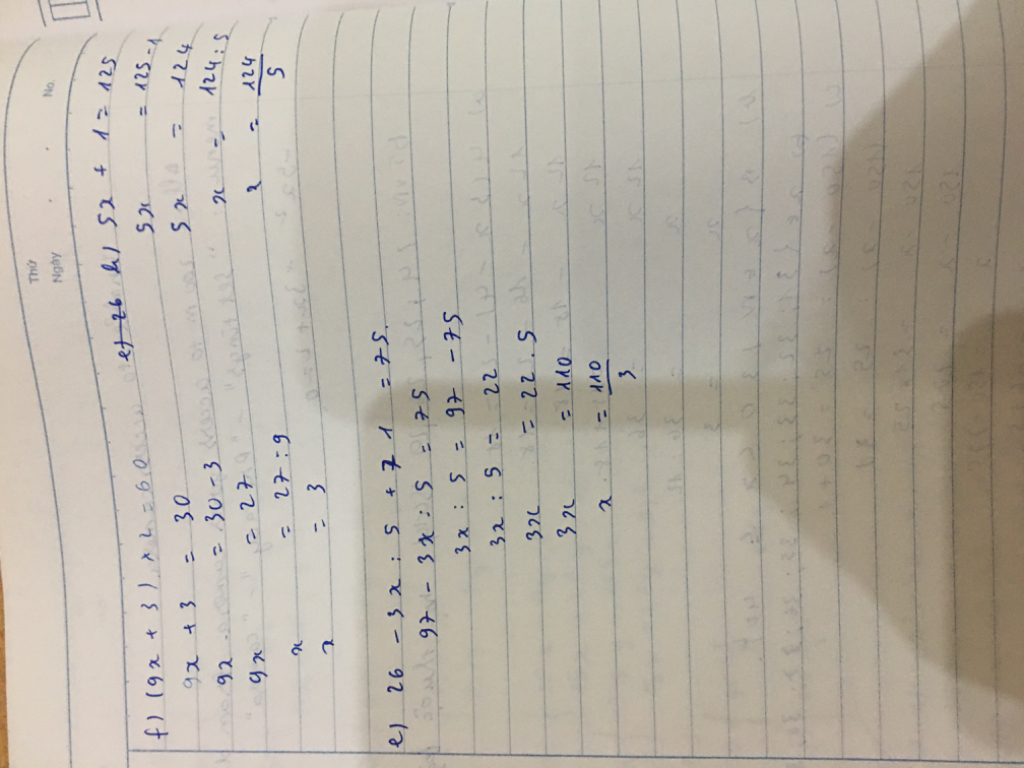 Thứ
Ngày
No.
f) (9x + 3) x 2 = 60
9x + 3 = 30
9x = 30 - 3
9x = 27
x = 27 : 9
x = 3
e) 26 h) 5x + 1 = 125
5x = 125 - 1
5x = 124
x = 124 : 5
x = 124/5
e) 26 - 3x : 5 + 71 = 75
97 - 3x : 5 = 75
3x : 5 = 97 - 75
3x : 5 = 22
3x = 22 . 5
3x = 110
x = 110/3